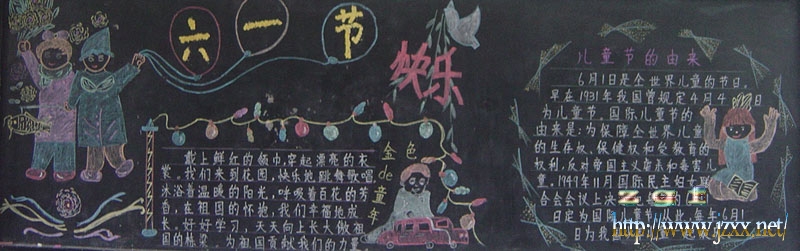 六一节
快乐
戴上鲜红的领巾,穿起漂亮的衣
裳。我们来到花园,快乐地跳舞歌唱。
沐浴着温暖的阳光,呼吸着百花的芳
香,在祖国的怀抱,我们幸福地成
长。好好学习,天天向上长大做祖
国的栋梁。为祖国贡献我们的力量
金色
de
童年
儿童节的由来
6月1日是全世界儿童的节日。
早在1931年我国曾规定4月4日
为儿童节。国际儿童节的
由来是:为保障全世界儿童
的生存权、保健权和受教育的
权利,反对帝国主义虐杀和毒害儿
童。1949年11月国际民主妇女联
合会会议上决
日定为国际儿童节。从此,每年6月1
日为我国
zgf
http://www.jzxx.net/